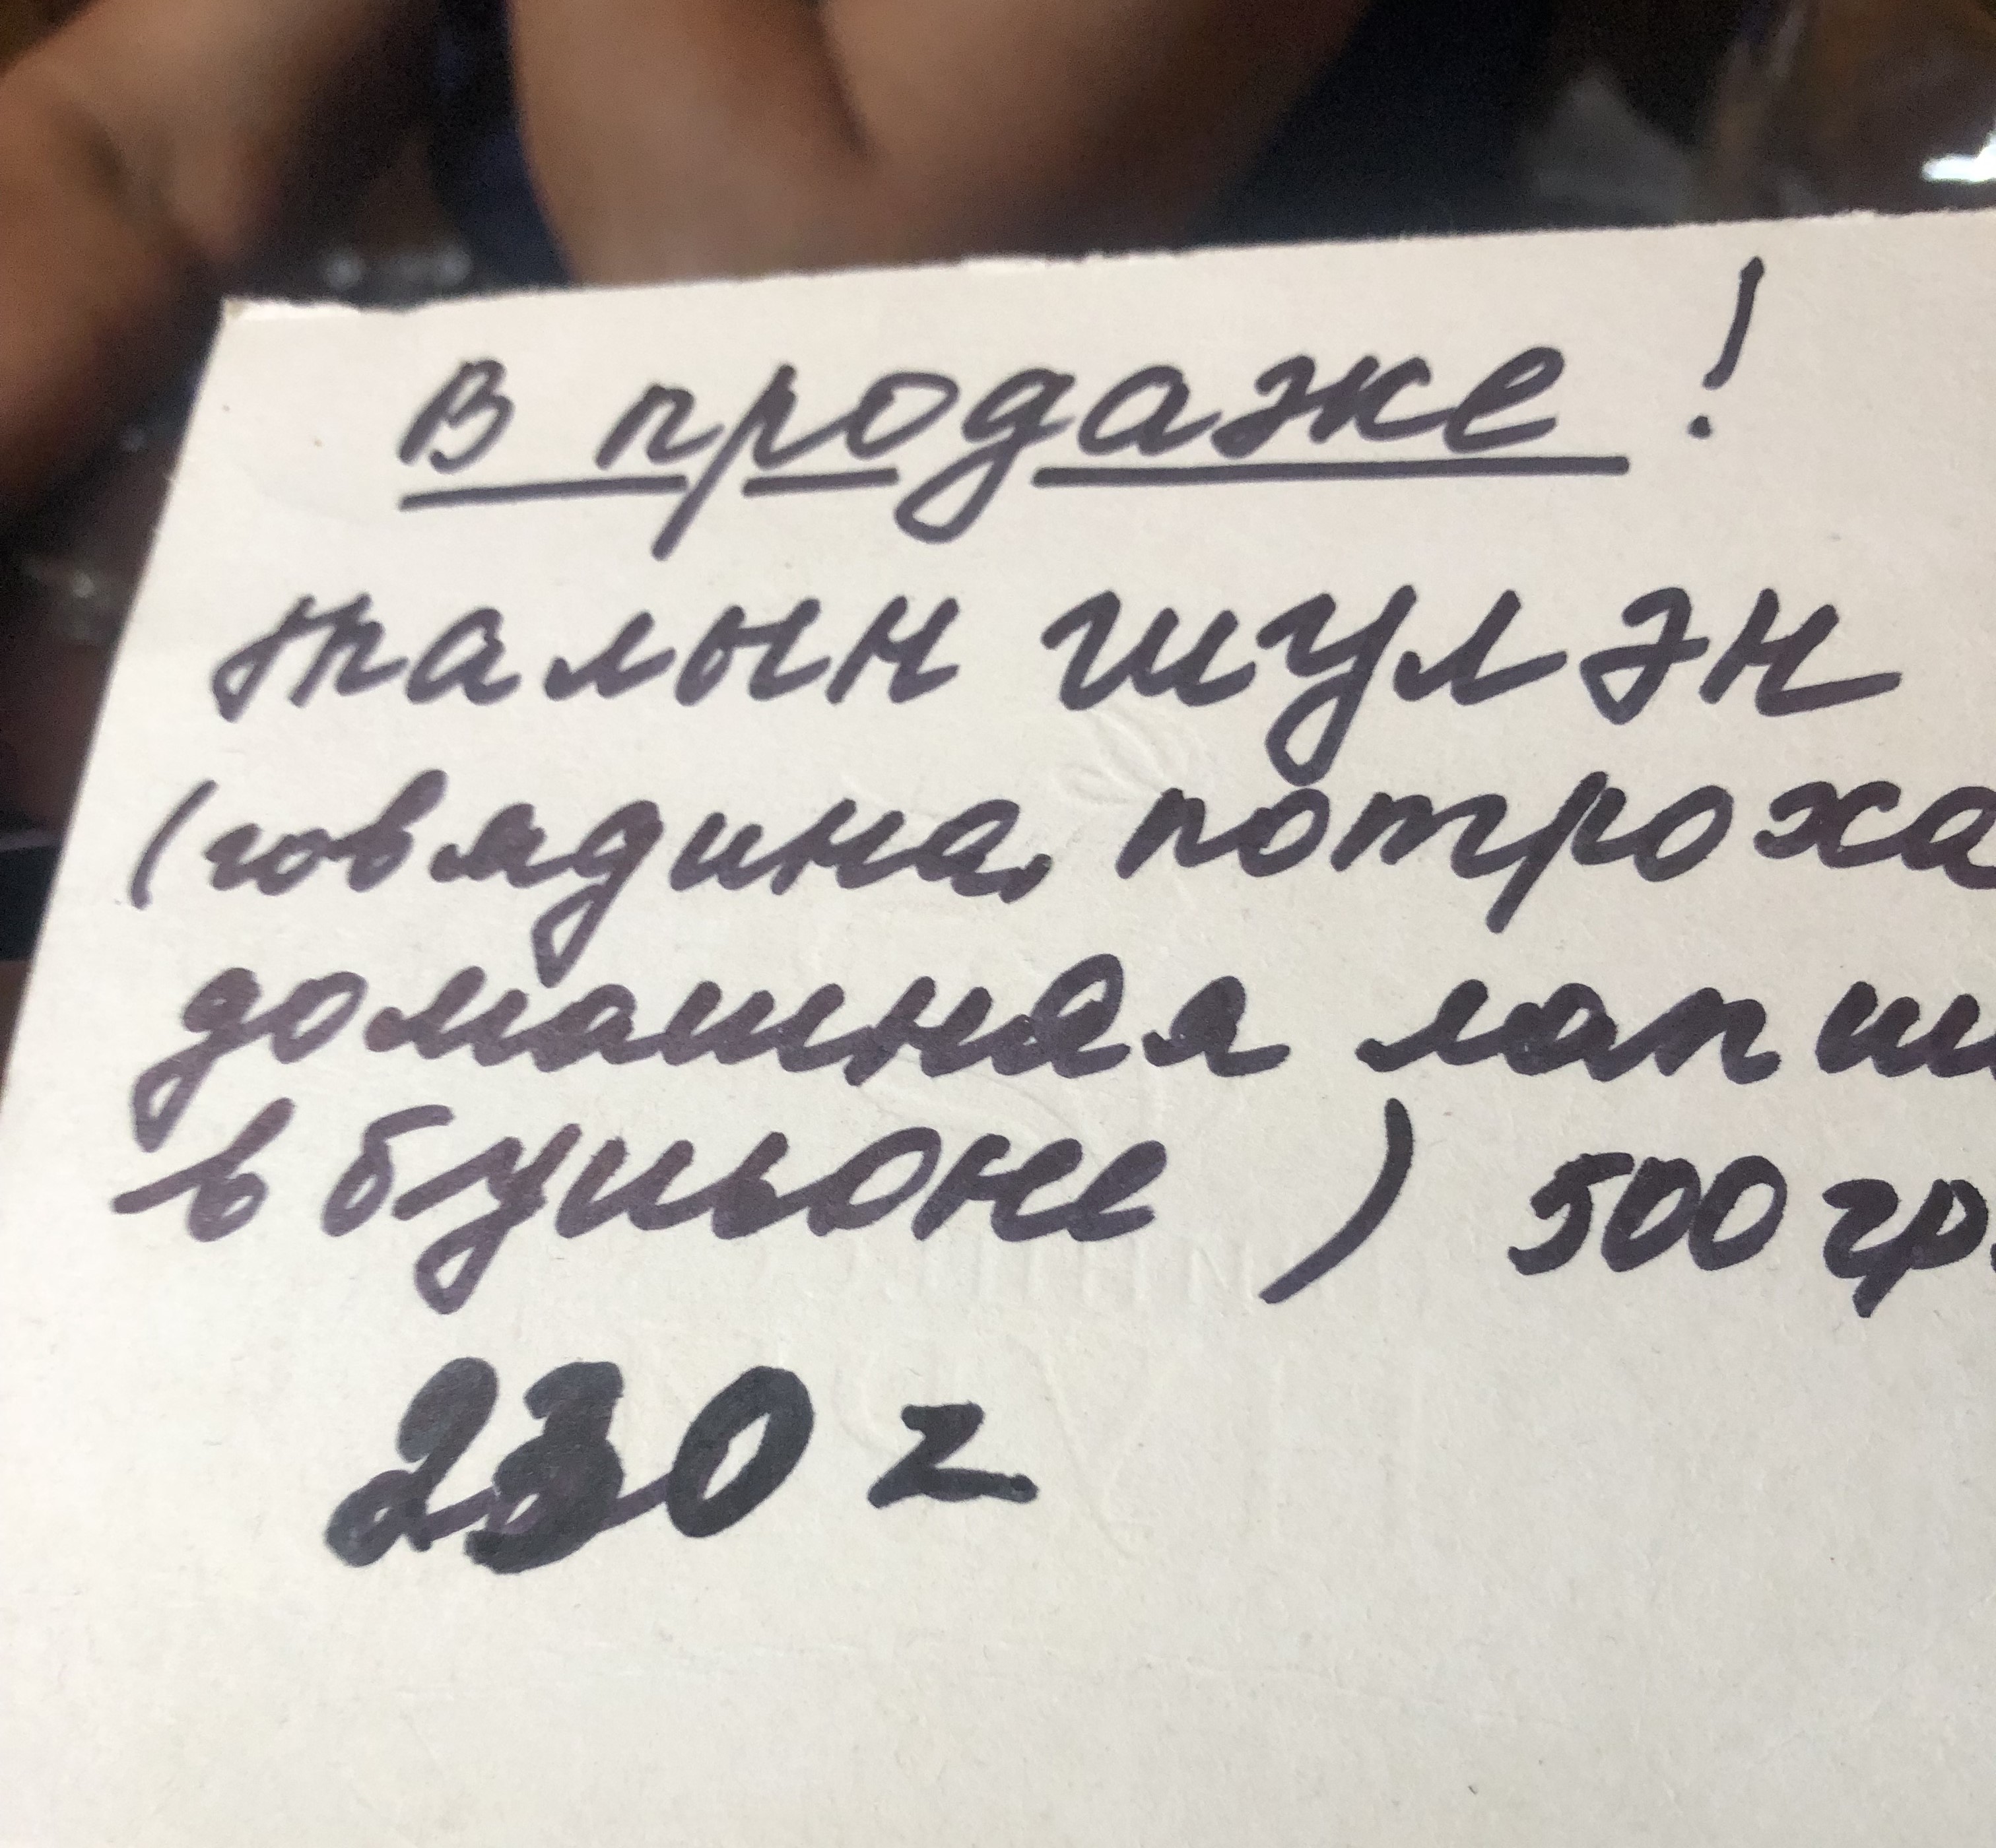 В продаже!
жалын шулэн
(говядина, потроха
домашняя лапш
в бульоне) 500 гр.
230 г